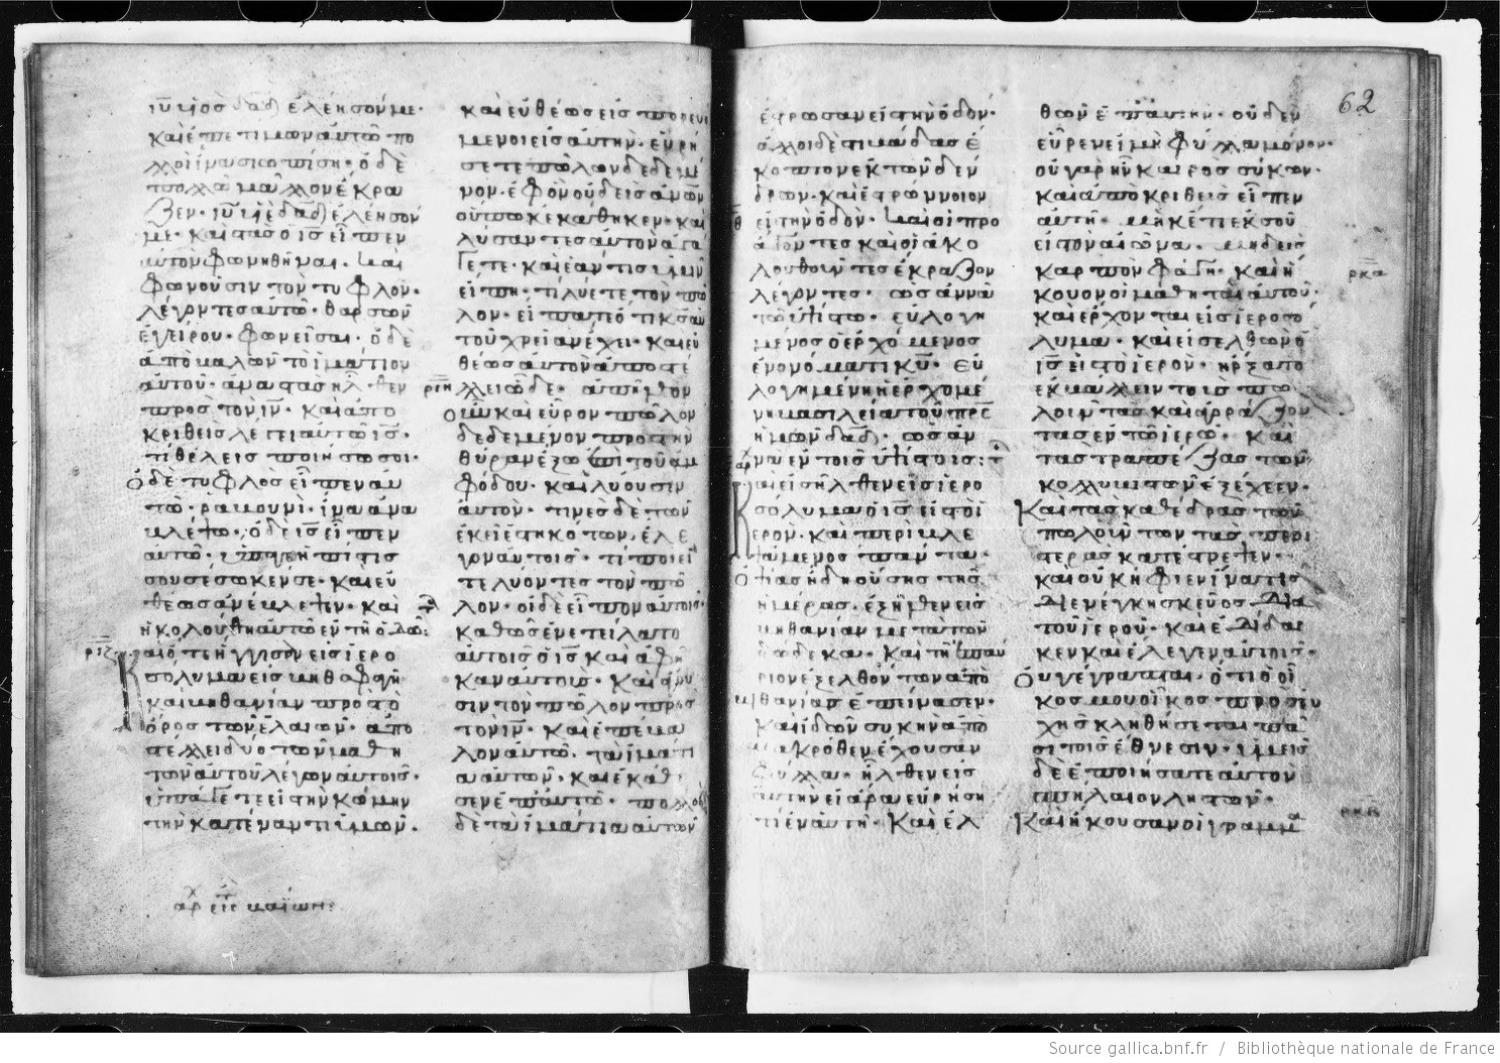 ιῡ υἱὸς δᾱδ ἐλέησόν με·
καὶ ἐπετίμων αὐτῶ πο
λλοὶ ἵνα σιωπήση· ὁ δὲ
πολλῶ μᾶλλον ἔκρα
ζεν· ιῡ υἱὲ δᾱδ ἐλέησόν
με· καὶ στὰς ὁ ις̄ εἶπεν
αὐτὸν φωνηθῆναι· καὶ
φωνοῦσιν τὸν τυφλὸν·
λέγοντες αὐτῶ· θαρσῶν
ἐγείρου· φωνεῖ σαι· ὁ δὲ
ἀποβαλὼν τὸ ἱμάτιον
αὐτοῦ· ἀναστὰς ἦλθεν
πρὸς τὸν ιν̄· καὶ ἀπο
κριθεὶς λέγει αὐτῶ ις̄·
τί θέλεις ποιήσω σοι·
ὁ δὲ τυφλὸς εἶπεν αὐ
τῶ· ραβουνὶ· ἵνα ἀνα
βλέψω· ὁ δὲ ις̄ εἶπεν
αὐτῶ· ὕπαγε ἡ πίστις
σου σέσωκέν σε· καὶ εὐ
θέως ἀνέβλεψεν· καὶ
ἠκολούθη αὐτῶ ἐν τῆ ὁδῶ:
ριζ Καὶ ὅτε ἤγγισεν εἰς ἱερο
σόλυμα εἰς βηθσφαγῆ
καὶ βηθανίαν πρὸς τὸ
ὄρος τῶν ἐλαιῶν· ἀπο
στέλλει δύο τῶν μαθη
τῶν αὐτοῦ λέγων αὐτοῖς·
ὑπάγετε εἰς τὴν κώμην
τὴν κατέναντι ὑμῶν·
καὶ εὐθέως εἰσπορευό
μενοι εἰς αὐτὴν· εὑρή
σετε πῶλον δεδεμέ
νον· ἐφ' ὃν οὐδεὶς ἀν̄ων
οὔπω κεκάθηκεν· καὶ
λύσαντες αὐτὸν ἀγά
γετε· καὶ ἐάν τις ὑμῖν
εἴπη· τί λύετε τὸν πῶ
λον· εἴπατε ὅτι κς̄ αὐ
τοῦ χρείαν ἔχει· καὶ εὐ
θέως αὐτὸν ἀποστέ
ριη λλει ὧδε· ἀπῆλθον
οὖν καὶ εὗρον πῶλον
δεδεμένον πρὸς τὴν
θύραν ἔξω ἐπὶ τοῦ ἀμ
φόδου· καὶ λύουσιν
αὐτὸν· τινὲς δὲ τῶν
ἐκεῖ ἑστηκότων, ἔλε
γον αὐτοῖς· τί ποιεῖ
τε λύοντες τὸν πῶ
λον· οἱ δὲ εἶπον αὐτοῖς·
καθὼς ἐνετείλατο
αὐτοῖς ὁ ις̄ καὶ ἀφῆ
καν αὐτούς· καὶ ἄγου
σιν τὸν πῶλον πρὸς
τὸν ιν̄· καὶ ἐπέβα
λον αὐτῶ· τὰ ἱμάτι
α αὐτῶν· καὶ ἐκάθι
σεν ἐπ' αὐτῶ· πολλοὶ
δὲ τὰ ἱμάτια αὐτῶν
αρχ εις βαιων
62
ἔστρωσαν εἰς τὴν ὁδὸν·
ἄλλοι δὲ στιβάδας ἔ
κοπτον ἐκ τῶν δέν
δρων· καὶ ἐστρώννυον
εἰς τὴν ὁδόν· καὶ οἱ προ
άγοντες καὶ οἱ ἀκο
λουθοῦντες ἔκραζον
λέγοντες· ὡσαννὰ
τῶ ὑψίστω· εὐλογη
μένος ὁ ἐρχόμενος
ἐν ὀνόματι κῡ· εὐ
λογημένη ἡ ἐρχομέ
νη βασιλεία τοῦ πρ̄ς
ἡμῶν δᾱδ· ὡσαν
νὰ ἐν τοῖς ὑψίστοις:
Καὶ εἰσῆλθεν εἰς ἱερο
σόλυμα ὁ ις̄ εἰς τὸ ἱ
ερὸν· καὶ περιβλε
ψάμενος πάντα·
ὀψίας ἤδη οὔσης τῆς
ἡμέρας· ἐξῆλθεν εἰς
βηθανίαν μετὰ τῶν
δώδεκα· καὶ τῆ ἐπαύ
ριον ἐξελθόντων ἀπὸ
βηθανίας ἐπείνασεν·
καὶ ἰδὼν συκῆν ἀπὸ
μακρόθεν ἔχουσαν
φύλλα· ἦλθεν εἰς
αὐτὴν εἰ ἄρα εὑρήση
τὶ ἐν αὐτῆ· Καὶ ἐλ
θὼν ἐπ' αὐτὴν· οὐδὲν
εὗρεν εἰ μὴ φύλλα μόνον·
οὐ γὰρ ἦν καιρὸς σύκων·
καὶ ἀποκριθεὶς εἶπεν
αὐτῆ· μηκέτι ἐκ σοῦ
εἰς τὸν αἰῶνα· μηδεὶς
ρκα καρπὸν φάγη· καὶ ἤ
κουον οἱ μαθηταὶ αὐτοῦ·
καὶ ἔρχονται εἰς ἱεροσό
λυμα· καὶ εἰσελθὼν ὁ
ις̄ εἰς τὸ ἱερὸν· ἤρξατο
ἐκβάλλειν τοὺς πω
λοῦντας καὶ ἀγοράζον
τας ἐν τῶ ἱερῶ· καὶ
τὰς τραπέζας τῶν
κολλυβιστῶν ἐξέχεεν·
Καὶ τὰς καθέδρας τῶν
πωλούντων τὰς περι
στερὰς κατέστρεψεν·
καὶ οὐκ ἤφιεν ἵνα τὶς
διενέγκη σκεῦος διὰ
τοῦ ἱεροῦ· καὶ ἐδίδασ
κεν καὶ ἔλεγεν αὐτοῖς·
Οὐ γέγραπται· ὅτι ὁ οἶ
κός μου οἶκος προσευ
χῆς κληθήσεται πᾶ
σι τοῖς ἔθνεσιν· ὑμεῖς
δὲ ἐποιήσατε αὐτὸν
σπήλαιον ληστῶν·
ρκβ Καὶ ἤκουσαν οἱ γραμμα